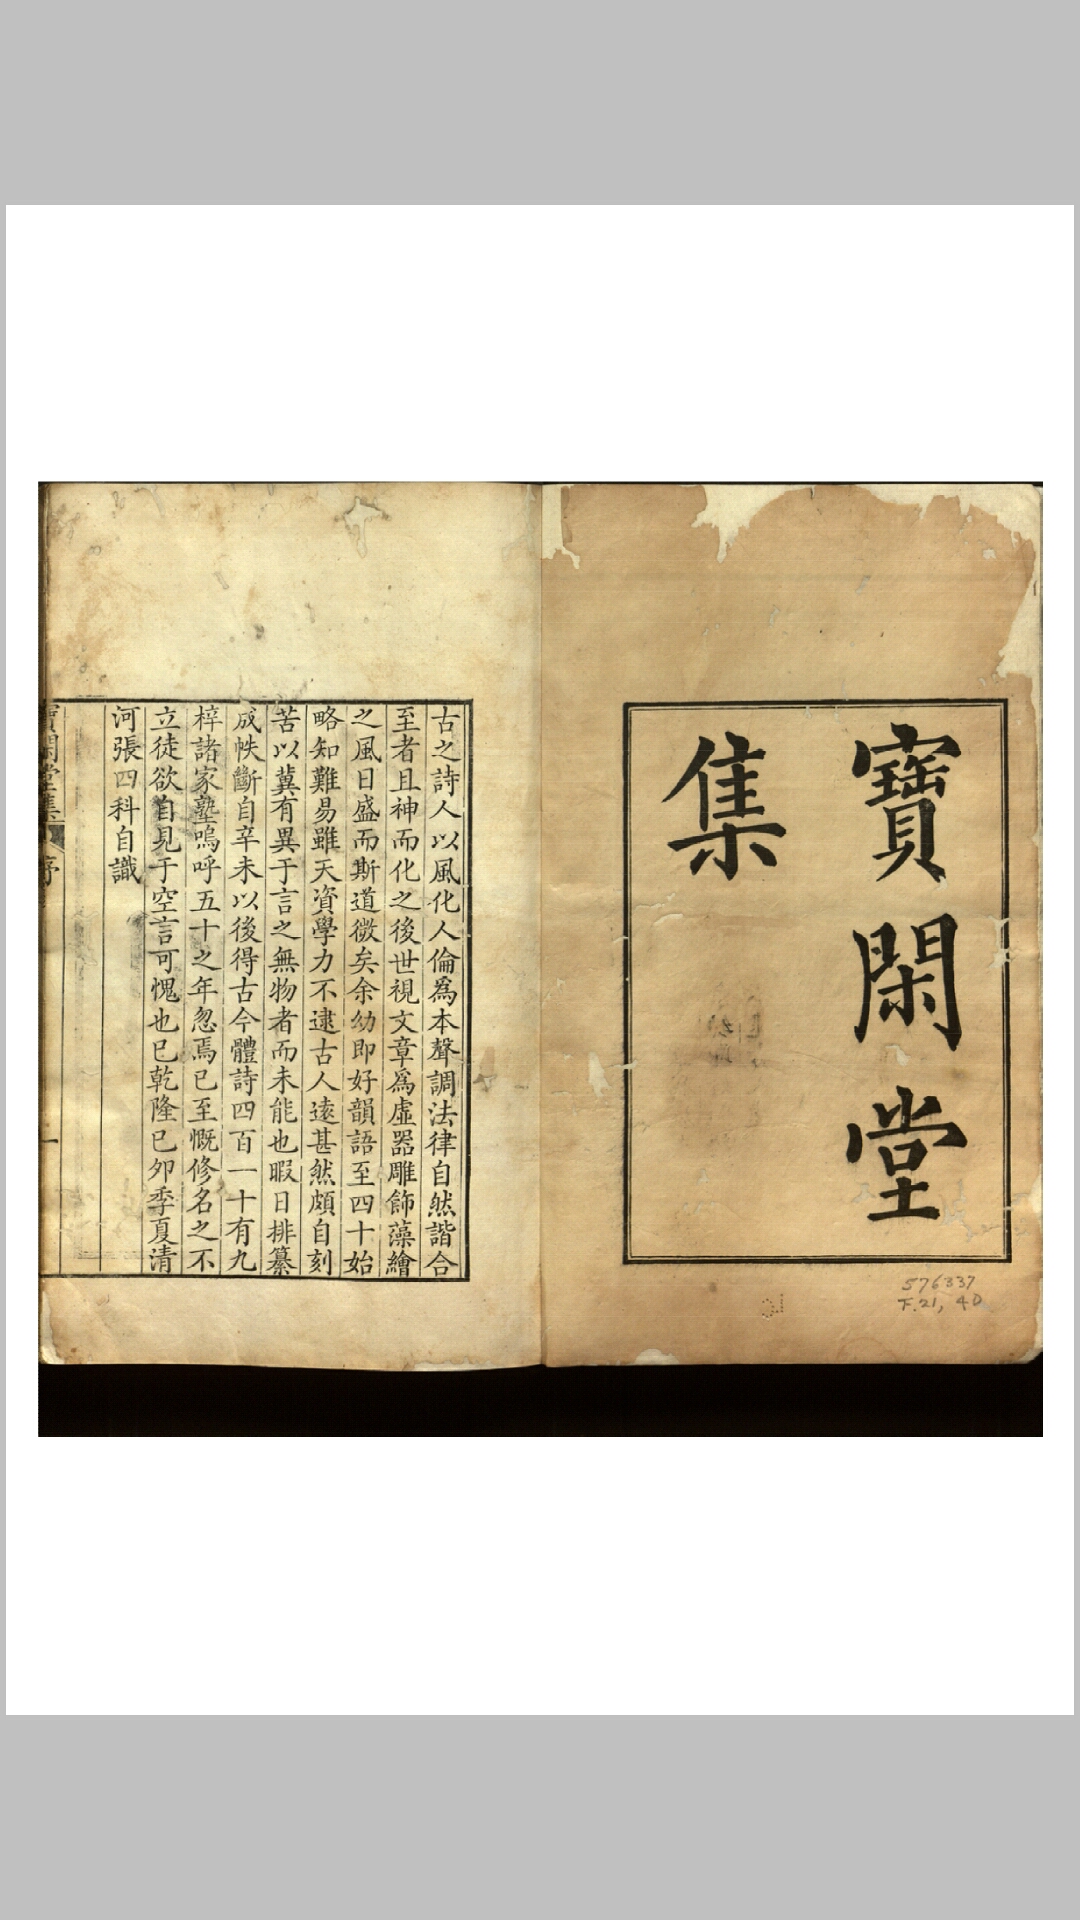 寶閑堂
集
576337
F.21, 40
古之詩人以風化人倫爲本聲調法律自然諧合
至者且神而化之後世視文章爲虛器雕飾藻繪
之風日盛而斯道微矣余幼即好韻語至四十始
略知難易雖天資學力不逮古人遠甚然頗自刻
苦以冀有異于言之無物者而未能也暇日排纂
成帙斷自辛未以後得古今體詩四百一十有九
梓諸家塾嗚呼五十之年忽焉已至慨修名之不
立徒欲自見于空言可愧也已乾隆己卯季夏清
河張四科自識
寶閑堂集
序
一